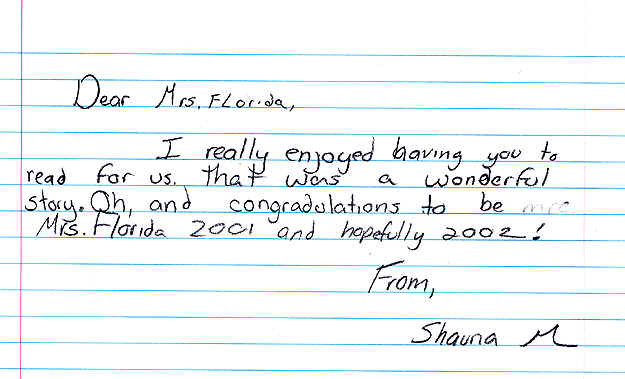 Dear Mrs. Florida,
I really enjoyed having you to
read for us. That was a wonderful
story. Oh, and congradulations to be
Mrs. Florida 2001 and hopefully 2002!
From,
Shauna M